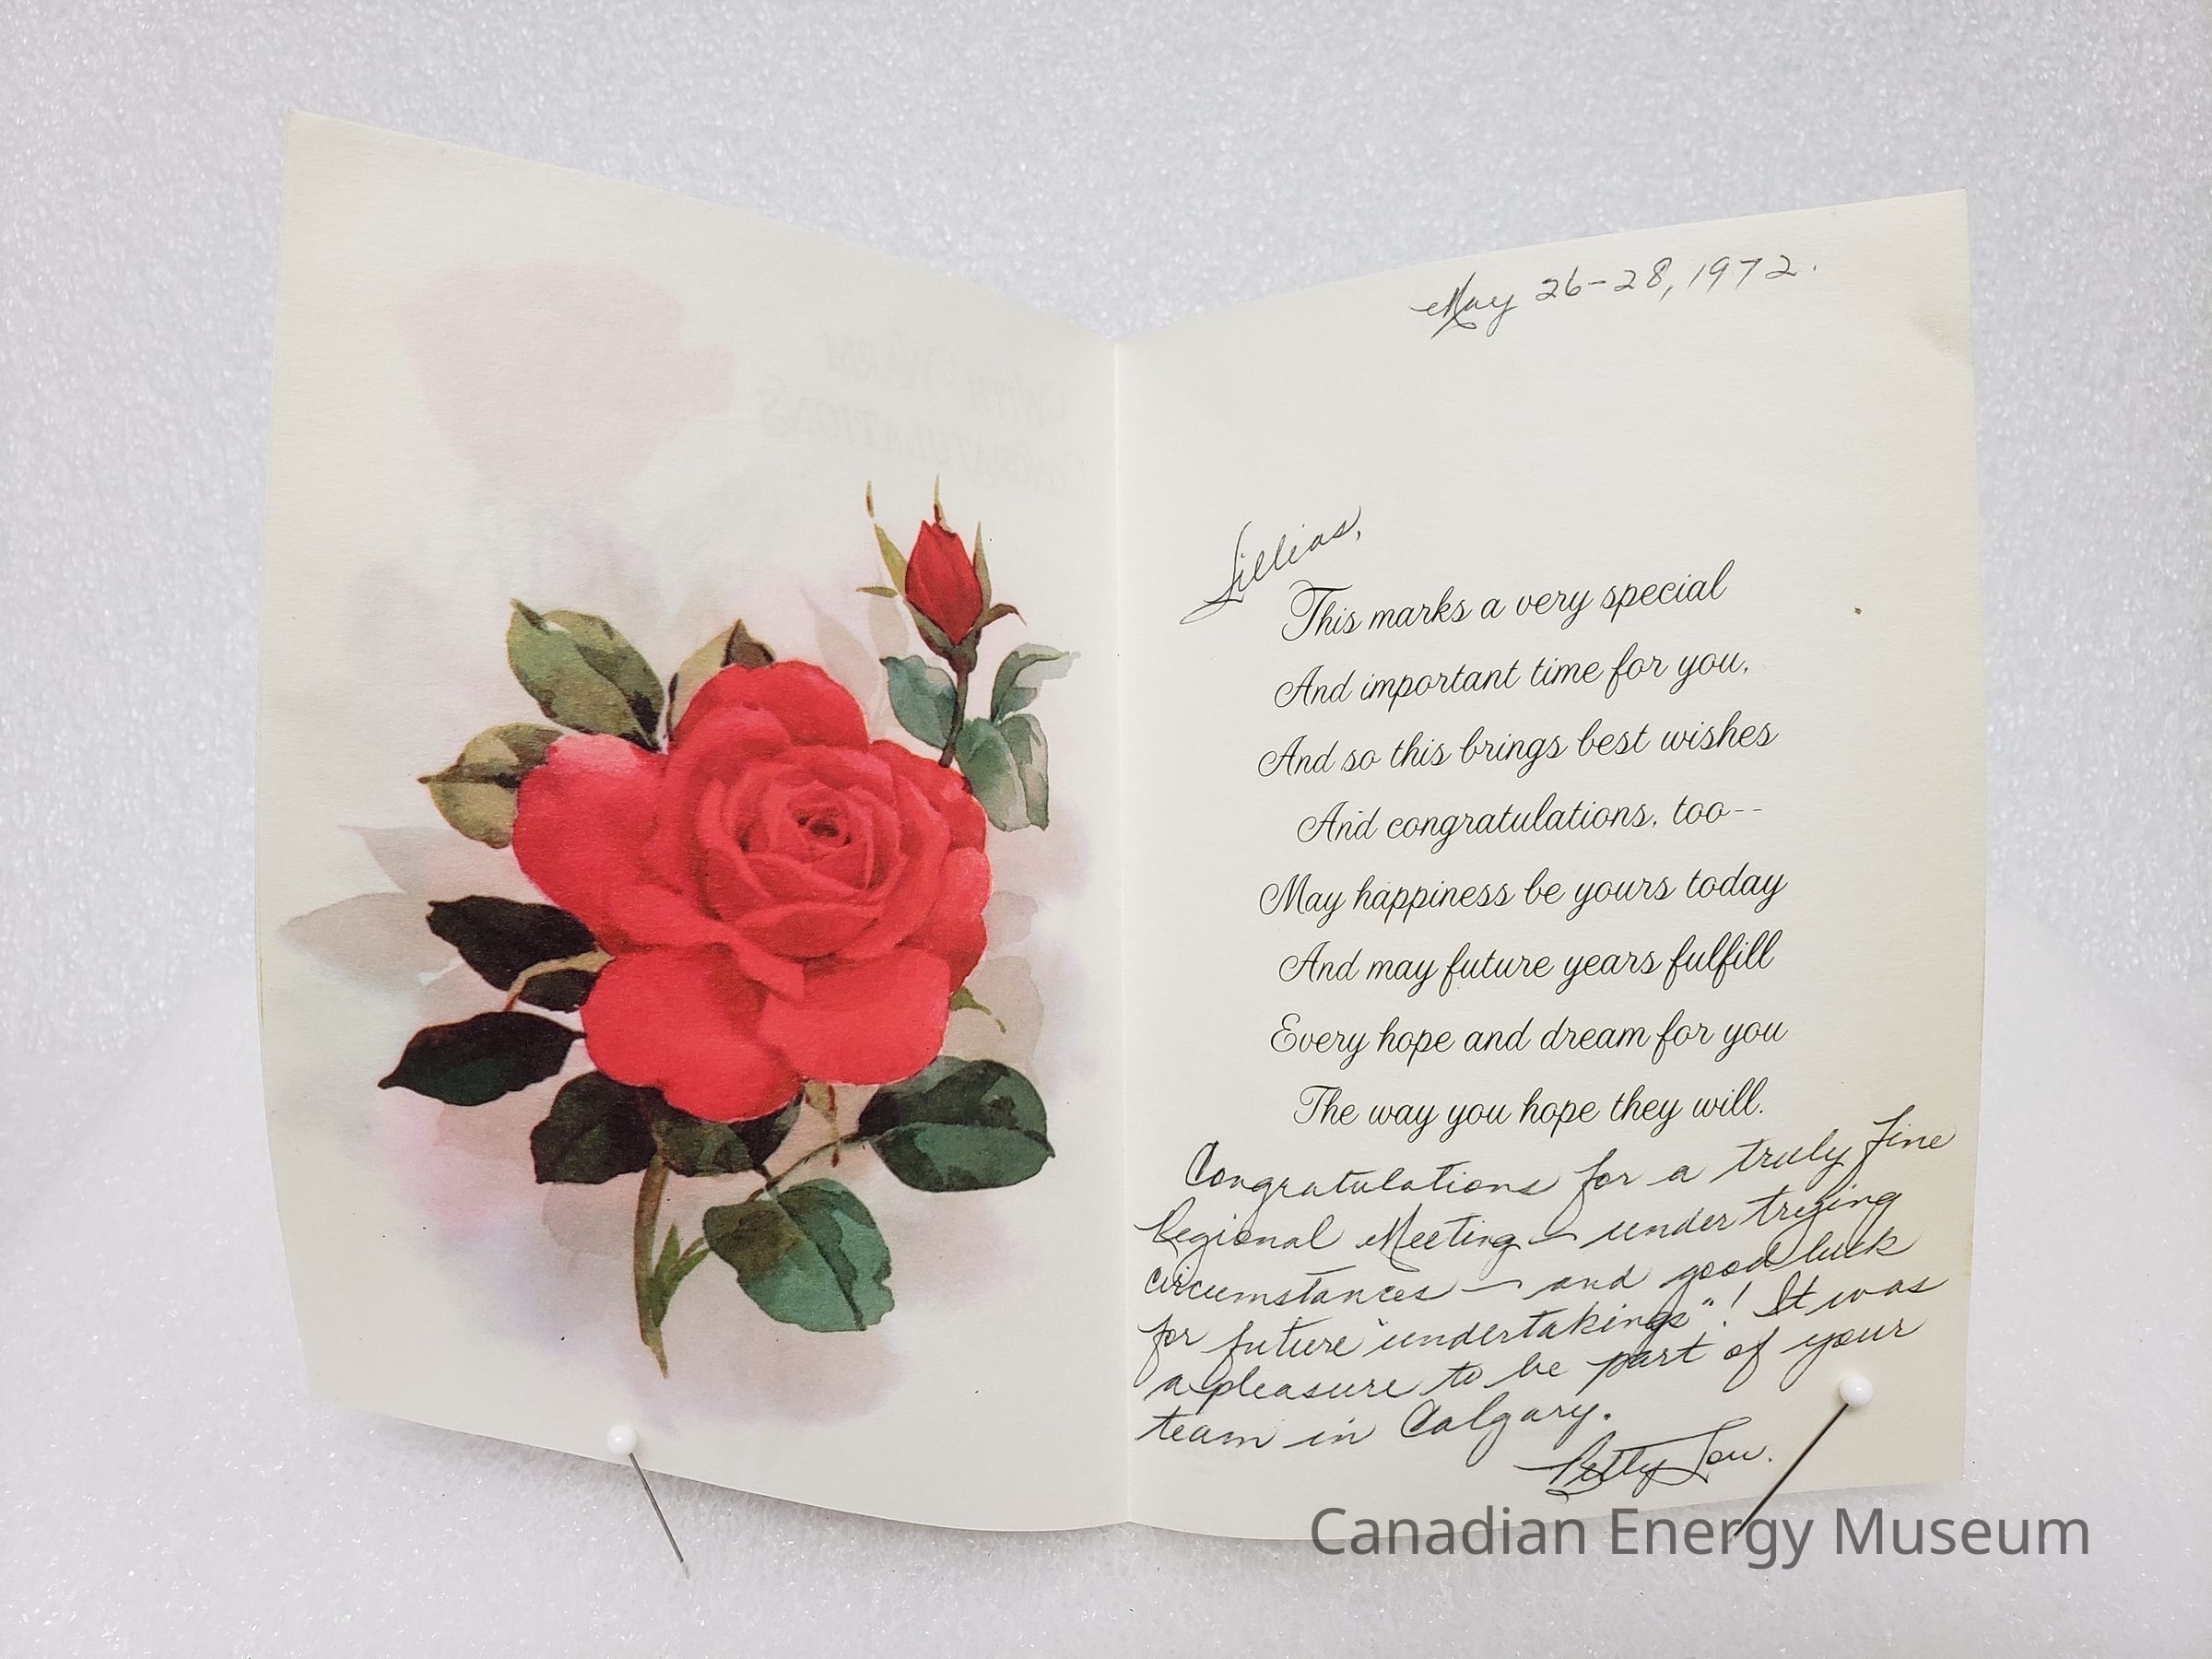 WITH WARM
CONGRATULATIONS
May 26-28, 1972.
Lillias,
This marks a very special
And important time for you,
And so this brings best wishes
And congratulations, too--
May happiness be yours today
And may future years fulfill
Every hope and dream for you
The way you hope they will.
Congratulations for a truly fine
Regional Meeting — under trying
circumstances — and good luck
for future "undertakings"! It was
a pleasure to be part of your
team in Calgary.
Betty Lou.
Canadian Energy Museum